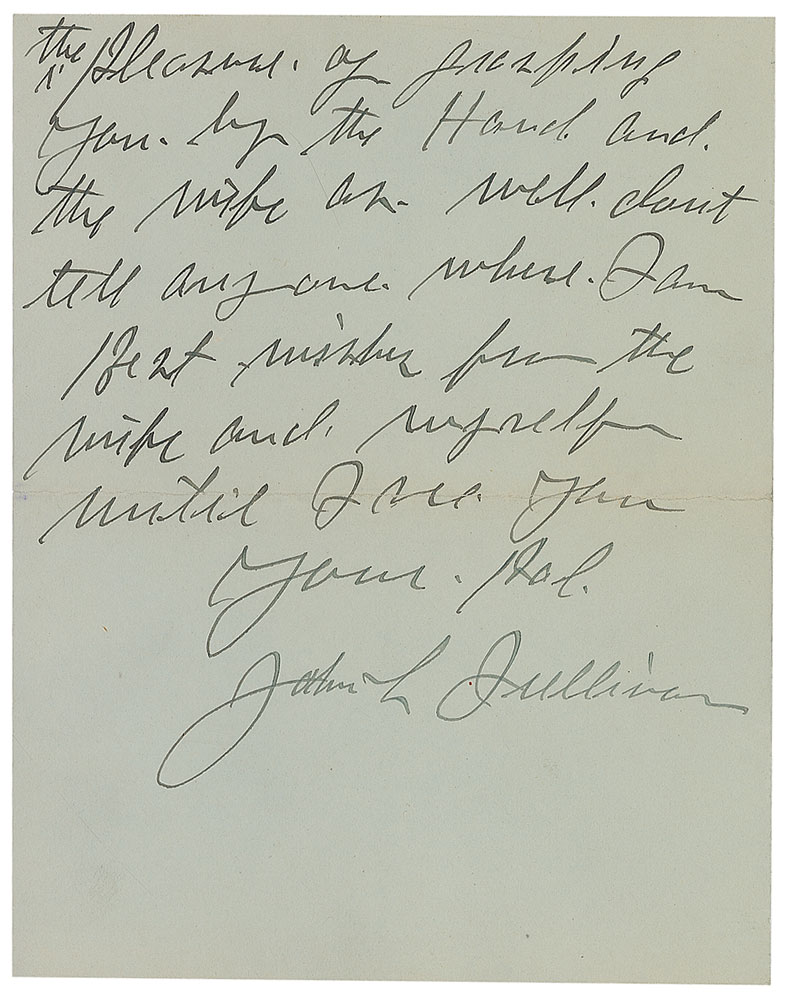 the Pleasure. of grasping
You. by the Hand. and.
the wife as. well. dont
tell any one. where. I am
Best wishes from the
wife and. myself
until I see. You
Your. Pal.
John L Sullivan